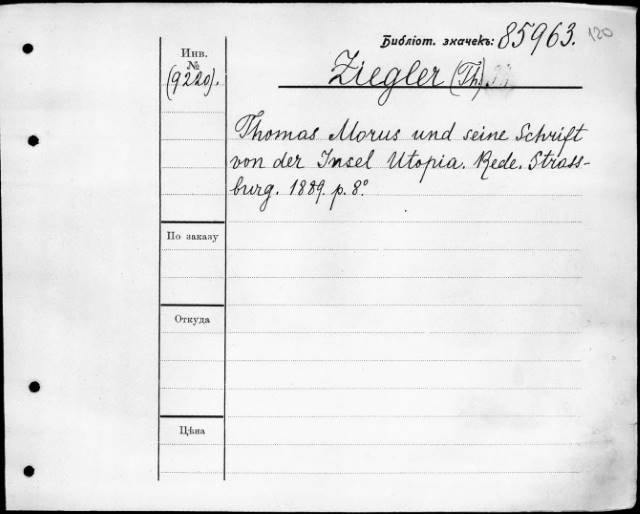 Библіот. значекъ: 85963. 120
Инв.
№
(9220).
Ziegler (Th.).
Thomas Morus und seine Schrift
von der Insel Utopia. Rede. Strass-
burg. 1889. p. 8°
По заказу
Откуда
Цѣна